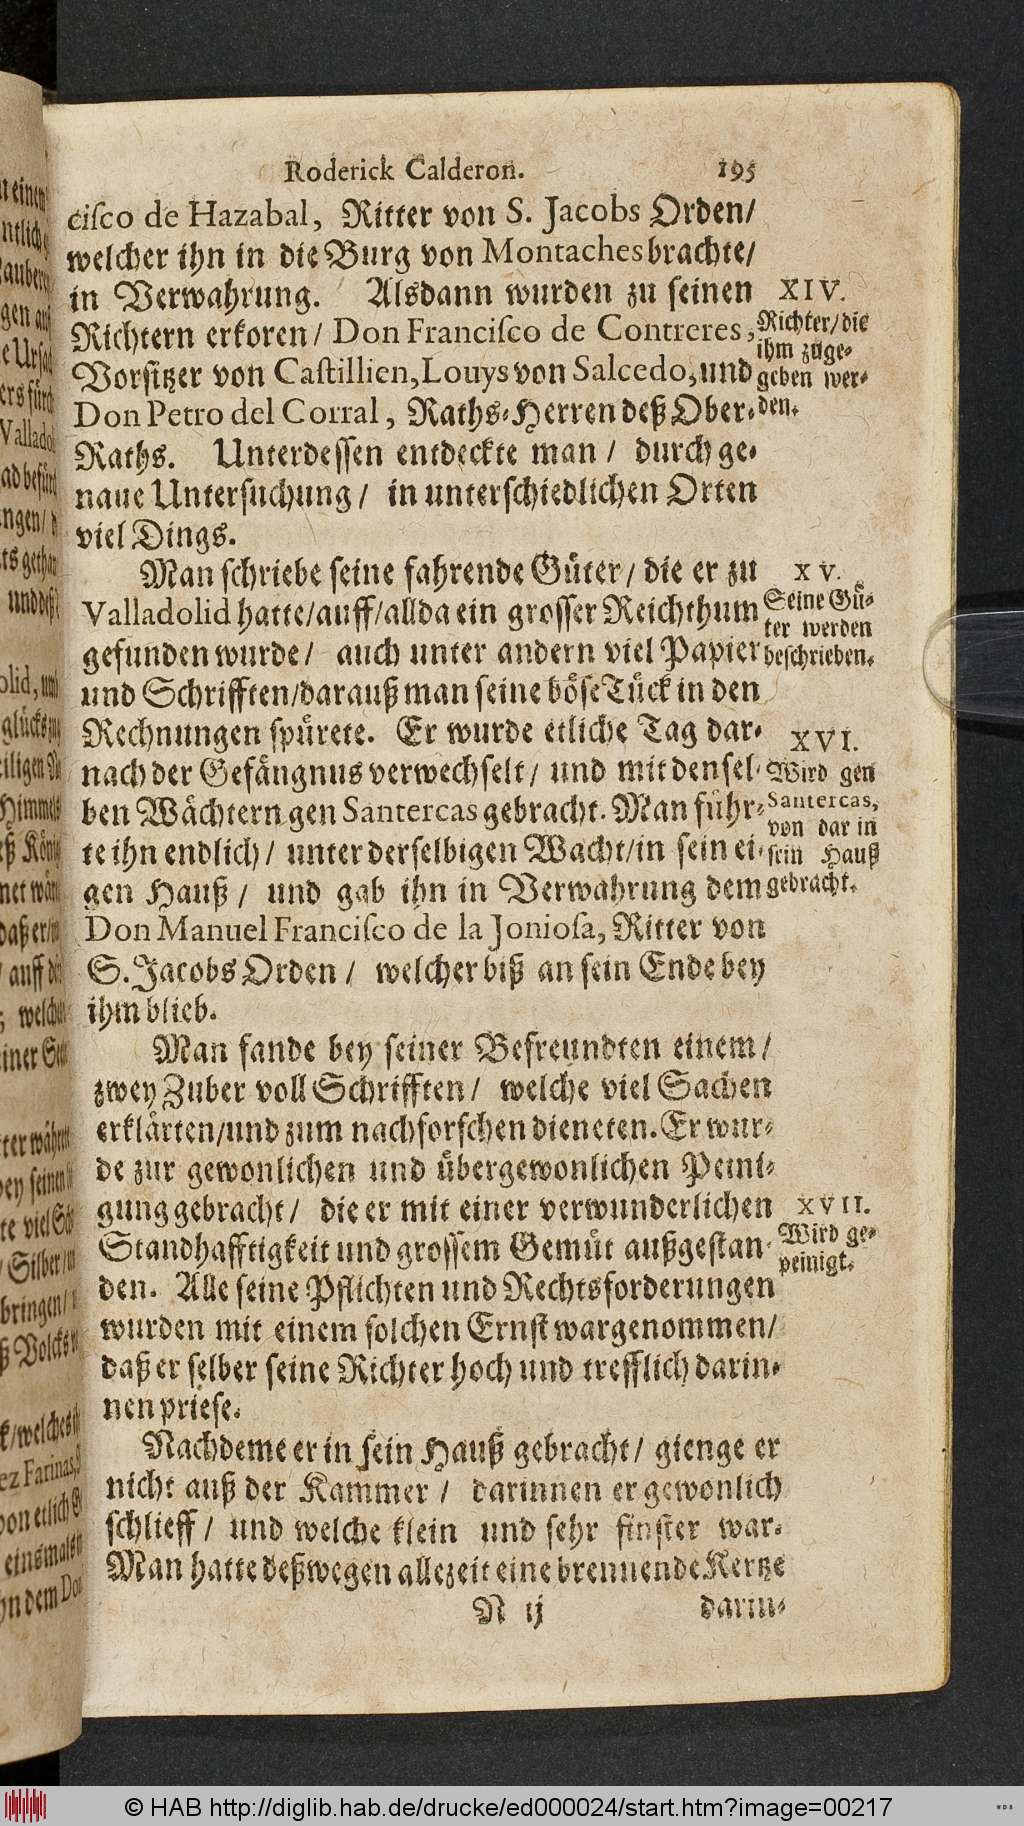 Roderick Calderon. 195
ciſco de Hazabal, Ritter von S. Jacobs Orden/
welcher ihn in die Burg von Montaches brachte/
in Verwahrung. Alsdann wurden zu seinen
Richtern erkoren/ Don Franciſco de Contreres,
Vorsitzer von Caſtillien, Louys von Salcedo, und
Don Petro del Corral, Raths-Herren deß Ober-
Raths. Unterdessen entdeckte man/ durch ge-
naue Untersuchung/ in unterschiedlichen Orten
viel Dings.
XIV.
Richter/die
ihm zuge-
geben wer-
den.
Man schriebe seine fahrende Güter/ die er zu
Valladolid hatte/auff/allda ein grosser Reichthum
gefunden wurde/ auch unter andern viel Papier
und Schrifften/darauß man seine böse Tück in den
Rechnungen spürete. Er wurde etliche Tag dar-
nach der Gefängnus verwechselt/ und mit densel-
ben Wächtern gen Santercas gebracht. Man führ-
te ihn endlich/ unter derselbigen Wacht/in sein ei-
gen Hauß/ und gab ihn in Verwahrung dem
Don Manuel Franciſco de la Jonioſa, Ritter von
S. Jacobs Orden/ welcher biß an sein Ende bey
ihm blieb.
XV.
Seine Gü-
ter werden
beschrieben.
XVI.
Wird gen
Santercas,
von dar in
sein Hauß
gebracht.
Man fande bey seiner Befreundten einem/
zwey Zuber voll Schrifften/ welche viel Sachen
erklärten/und zum nachforschen dieneten. Er wur-
de zur gewonlichen und übergewonlichen Peini-
gung gebracht/ die er mit einer verwunderlichen
Standhafftigkeit und grossem Gemüt außgestan-
den. Alle seine Pflichten und Rechtsforderungen
wurden mit einem solchen Ernst wargenommen/
daß er selber seine Richter hoch und trefflich darin-
nen priese.
XVII.
Wird ge-
peinigt.
Nachdeme er in sein Hauß gebracht/ gienge er
nicht auß der Kammer/ darinnen er gewonlich
schlieff/ und welche klein und sehr finster war.
Man hatte deßwegen allezeit eine brennende Kertze
N ij darin-
© HAB http://diglib.hab.de/drucke/ed000024/start.htm?image=00217